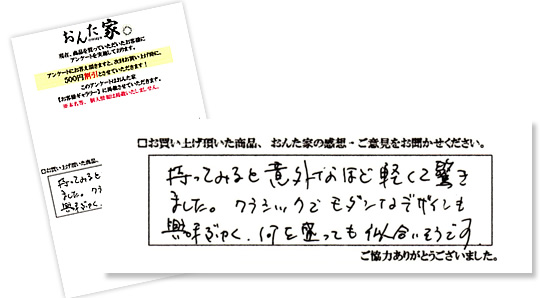 おんた家
現在、商品を買っていただいたお客様に
アンケートを実施しております。
アンケートにお答え頂きますと、次回お買い上げ時に、
500円割引とさせていただきます!
このアンケートはおんた家
【お客様ギャラリー】に掲載させていただきます。
※お名前、個人情報は掲載いたしません。
□お買い上げ頂いた商品、
持ってみると
ました。クラ
興味ぶかく、
□お買い上げ頂いた商品、おんた家の感想・ご意見をお聞かせください。
持ってみると意外なほど軽くて驚き
ました。クラシックでモダンなデザインも
興味ぶかく、何を盛っても似合いそうです
ご協力ありがとうございました。